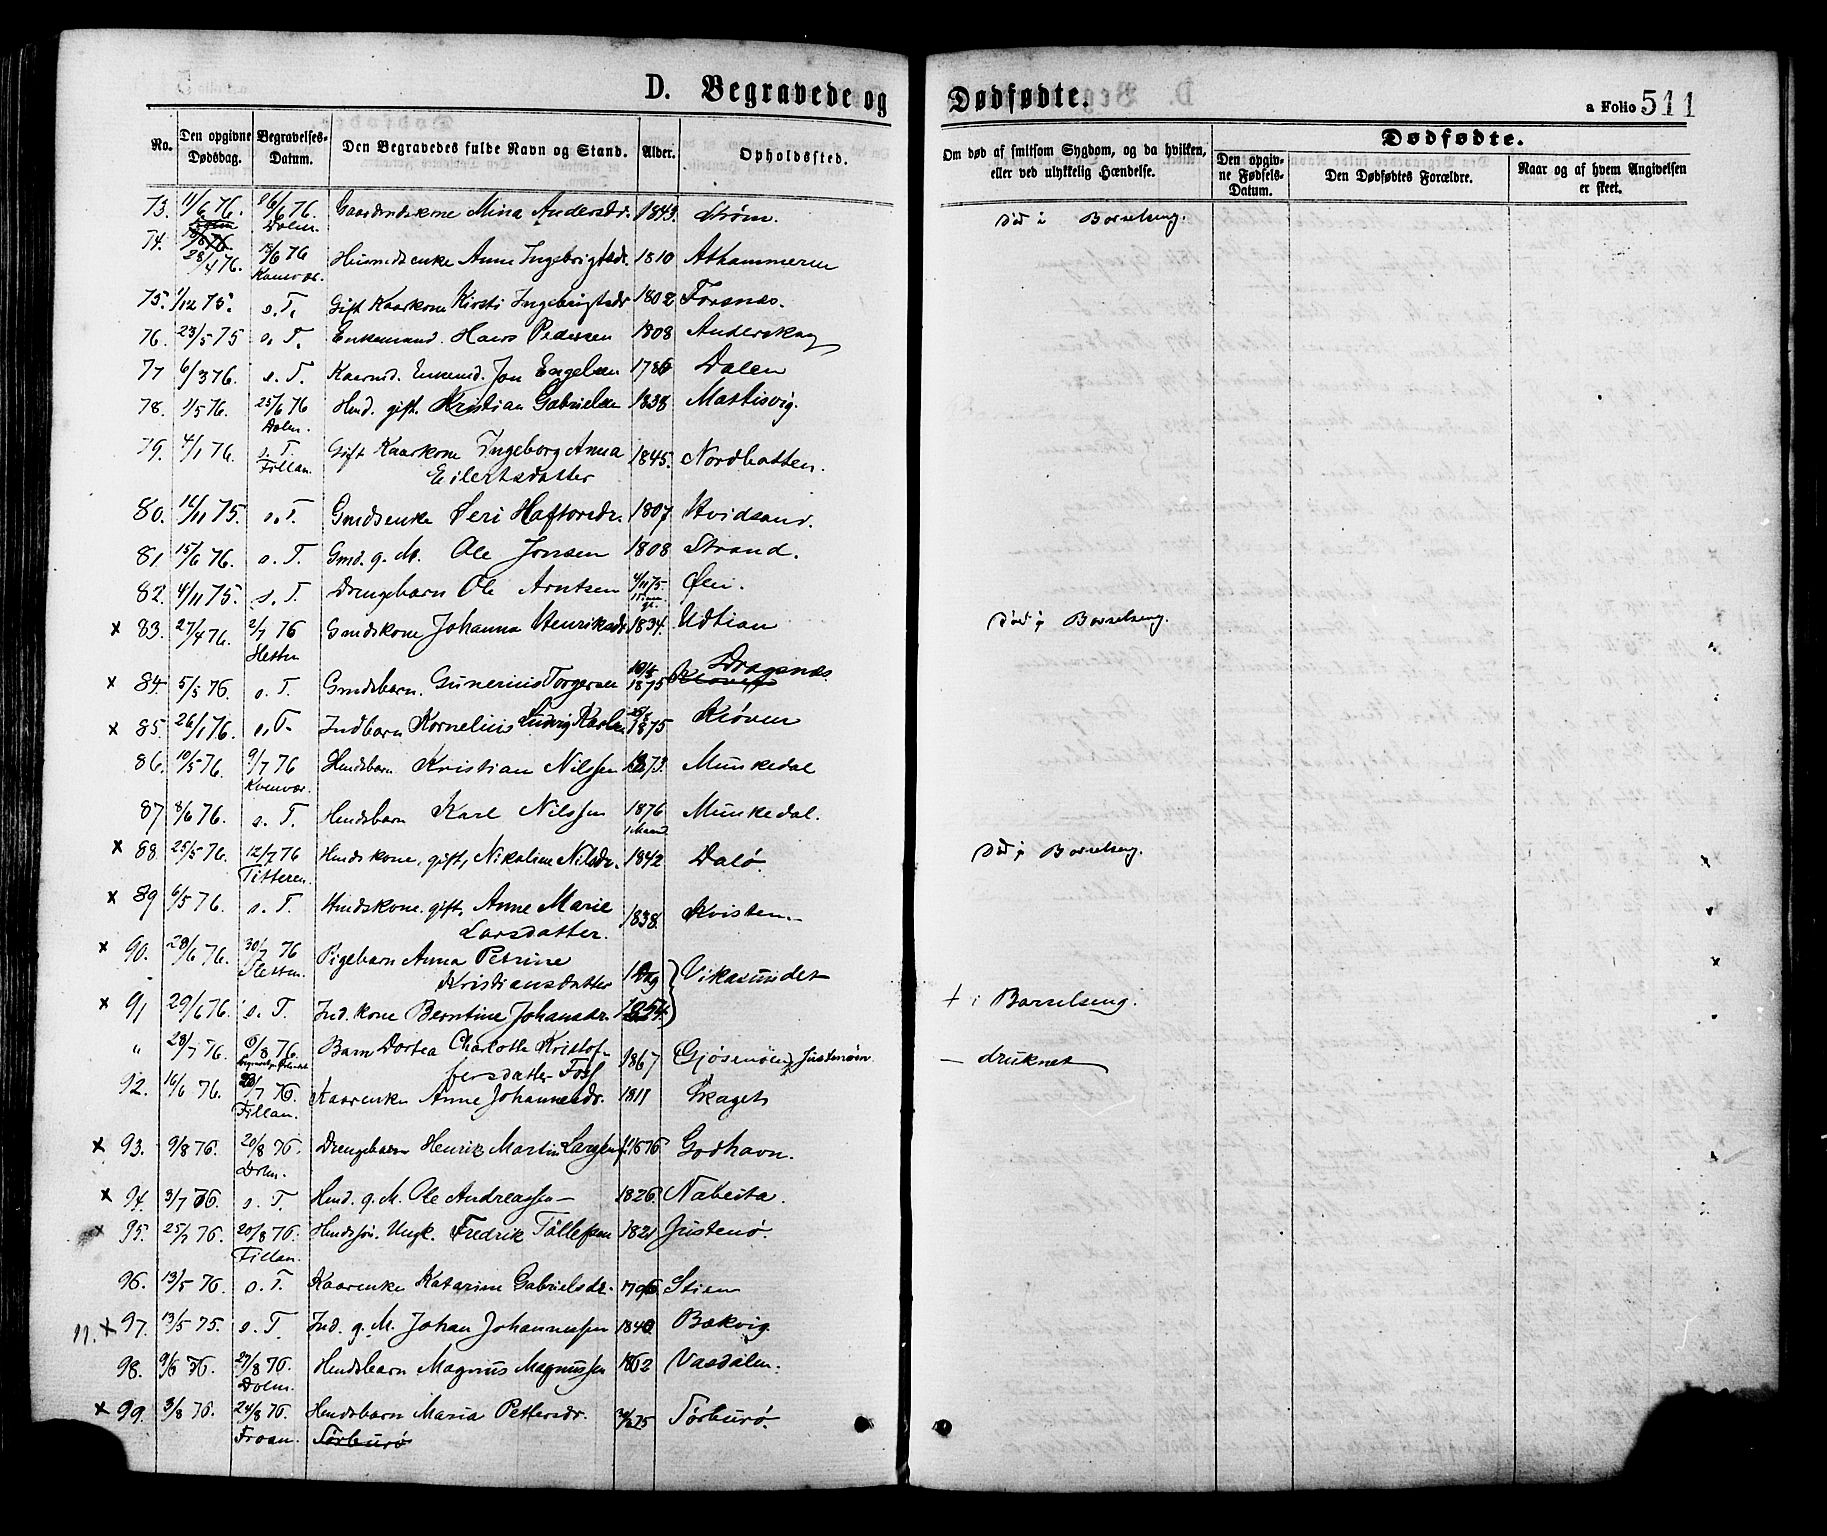 D. Begravede og Dødfødte.
a Folio 511
No.
Den opgivne Dødsdag.
Begravelses-Datum.
Den Begravedes fulde Navn og Stand.
Alder.
Opholdssted.
Om død af smitsom Sygdom, og da hvilken, eller ved ulykkelig Hændelse.
Dødfødte.
Den opgivne Fødsels-Datum.
Den Dødfødtes Forældre.
Naar og af hvem Angivelsen er skeet.
73. 11/6 76. /6 76. Dolm. Gaardmdskone Mina Andersdr. 1843. Strøm. Død i Barselseng.
74. 28/4 76. /6 76 Kvenvær. Husmdsenke Anne Ingebrigtsdr. 1810 Athammeren
75. 1/12 75. s. T. Gift Kaarkone Kirsti Ingebrigtsdr 1802 Forsnes.
76. 23/5 75 s. T. Enkemand. Hans Pedersen 1808 Anderskog
77 6/3 76. s. T. Kaarmd. Enkemd. Jon Engelsen 1786 Dalen
78. 1/5 76. 25/6 76 Dolm. Hmd. gift. Kristian Gabrielsen 1838 Mastisvig.
79. 4/1 76. s. T. Fillan. Gift Kaarkone Ingeborg Anna
Eilertsdatter 1845. Nordhatten.
80. 12/11 75. s. T. Gmdsenke Seri Haftorsdr. 1807 Hvidsand.
81 15/6 76. s. T. Gmd. g. M. Ole Jonsen 1808 Strand.
82. 4/11 75. s. T. Drengebarn Ole Arntsen 4/11 75. Øen.
x 83. 27/4 76. 2/7 76 Hesten Gmdskone Johanna Henriksdr 1834. Udtian Død i Barselseng.
x 84. 5/5 76. s. T. Gmdsbarn. Gunerius Torgersen 1875 Dragsnes
x 85. 26/1 76. s. T. Indbarn Kornelius Ludvig Karlsen 1875 Kløven
86. 10/5 76. 9/7 76 Kvenvær. Hmdsbarn Kristian Nilssen 1873. Munkedal
87 8/6 76. s. T. Hmdsbarn Karl Nilssen 1876 Munkedal.
x 88. 25/5 76. 12/7 76 Titteren. Hmdskone, gift, Nikoline Nilsdr. 1842 Dalø. Død i Barselseng.
x 89 6/5 76. s. T. Hmdskone. gift, Anne Marie
Larsdatter. 1838. Kvisten.
x 90. 28/6 76. 30/7 76 Hesten. Pigebarn Anna Petrine
Kristiansdatter 1 Dag Vikasundet
x 91 29/6 76. s. T. Ind. kone Berntine Johansdr. 1854. + i Barselseng.
" 28/7 76. 6/8 76. Barn Dortea Charlotte Kristof-
fersdatter Foss 1867 Gjøsenøen, Justenøen — druknet
92. 16/6 76. /7 76. Fillan. Kaarenke Anne Johannesdr. 1811 Skaget
x 93. 9/8 76. 20/8 76. Dolm. Drengebarn Henrik Martin Larssen 11/6 76 Godhavn.
x 94. 3/7 76. s. T. Hmd. g. M. Ole Andreassen 1826. Nabeita.
x 95. 25/7 76. 20/8 76. Fillan. Hmdssøn. Ungk. Fredrik Tøllefsen 1821 Justenø.
96. 13/5 76. s. T. Kaarenke Katarine Gabrielsdr. 1796 Stien
11. x 97. 13/5 75. s. T. Ind. g. M. Johan Johannessen 1840 Bækvig
98. 9/6 76. 27/8 76. Dolm. Hmdsbarn Magnus Magnussen 1862 Vasdalen.
x 99. 3/8 76. 24/8 76. Froan. Hmdsbarn Maria Pettersdr. 75 Sørburø.
Sørburø